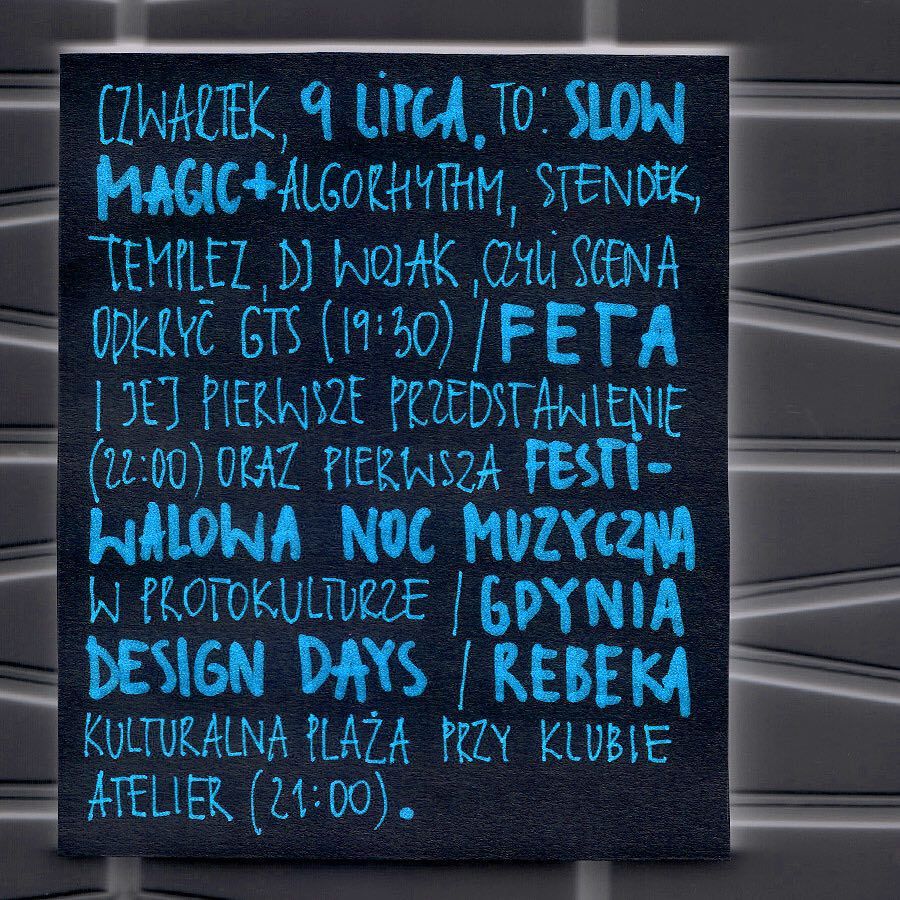 CZWARTEK, 9 LIPCA. TO: SLOW
MAGIC+ALGORHYTHM, STENDEK,
TEMPLEZ, DJ WOJAK, CZYLI SCENA
ODKRYĆ GTS (19:30) / FETA
I JEJ PIERWSZE PRZEDSTAWIENIE
(22:00) ORAZ PIERWSZA FESTI-
WALOWA NOC MUZYCZNA
W PROTOKULTURZE / GDYNIA
DESIGN DAYS / REBEKA
KULTURALNA PLAŻA PRZY KLUBIE
ATELIER (21:00).